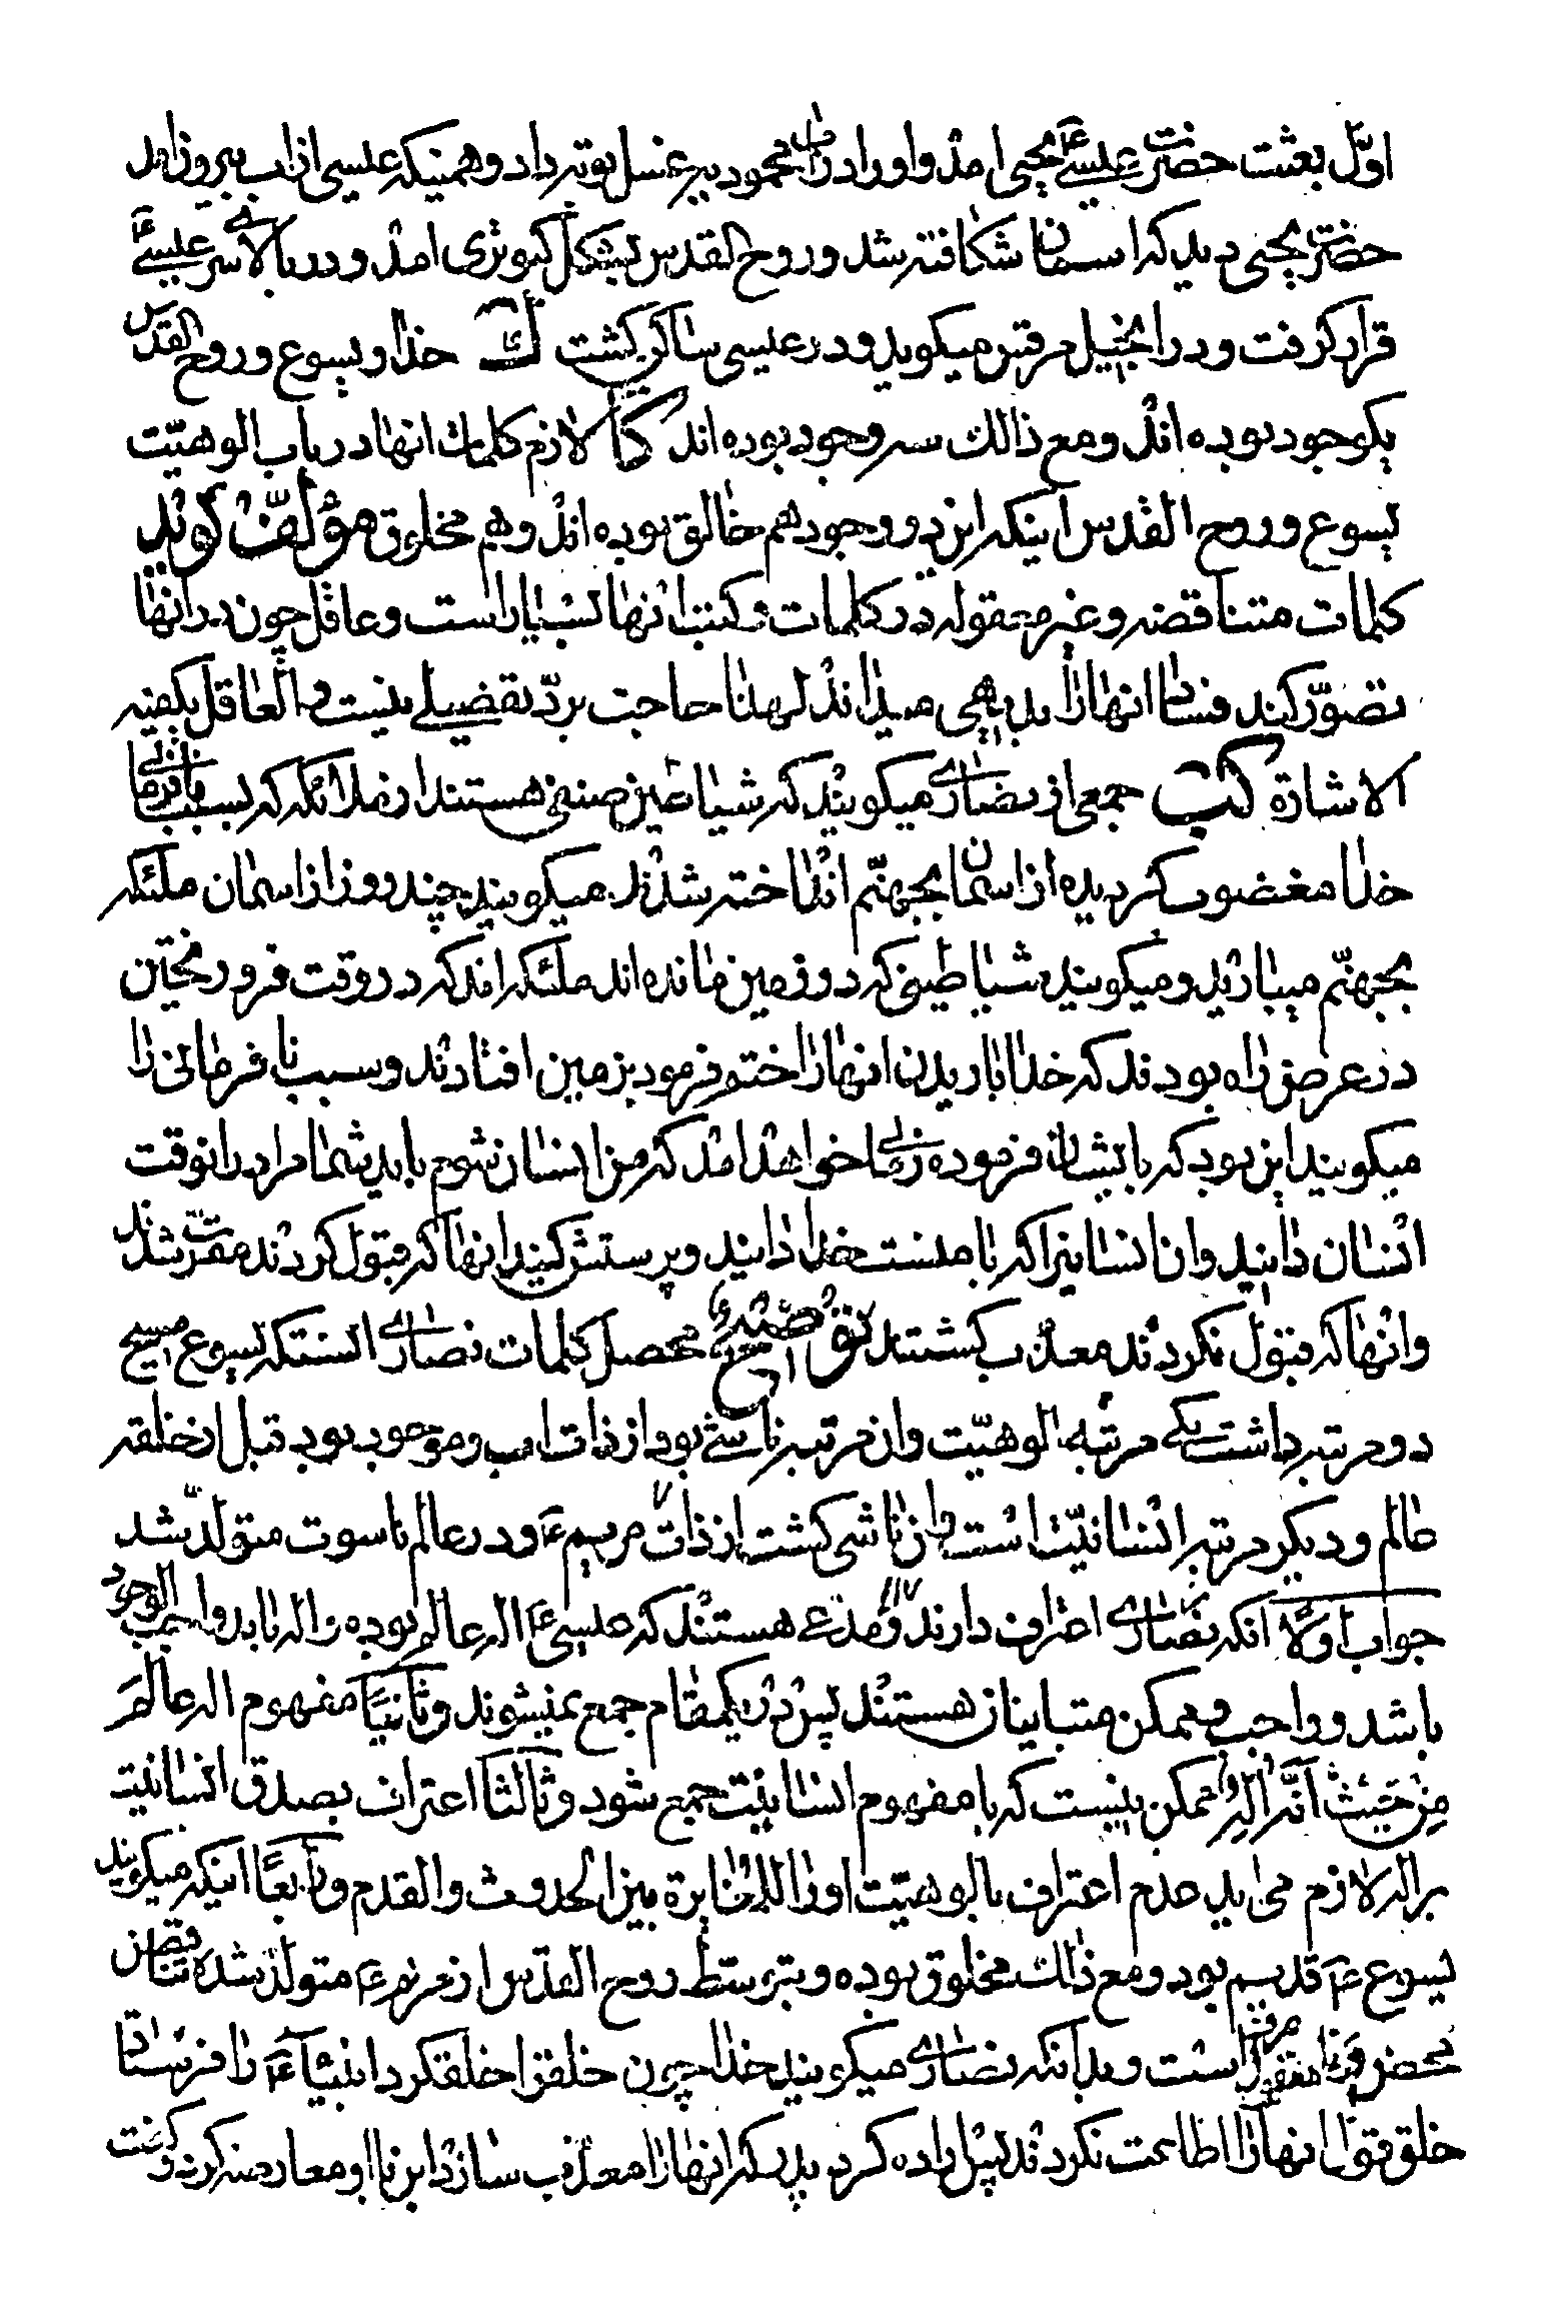 اوّل بعثت حضرت عیسی ع یحیی امد و او را در ان محمودیه غسل توبه داد و همینکه عیسی از اب بیرون امد
حضرت یحیی دید که اسمان شکافته شد و روح القدس بشکل کبوتری امد و در بالای سر عیسی ع
قرار گرفت و در انجیل مرقس میگوید و در عیسی ساکن گشت خدا و یسوع و روح القدس
یکوجود بوده اند و مع ذالک سه وجود بوده اند لازم کلمات انها در باب الوهیّت
یسوع و روح القدس اینکه این دو وجود هم خالق بوده اند و هم مخلوق مؤلّف گوید
کلمات متناقضه و غیر معقوله در کلمات و کتب انها بسیار است و عاقل چون در انها
تصوّر کند فساد انها را بدیهی میداند لهذا حاجت بردّ تفضیلی نیست و العاقل یکفیه
الاشارة جمعی از نصاری میگویند که شیاطین صنفی هستند از ملائکه که بسبب نافرمانی
خدا مغضوب گردیده از اسمان بجهنّم انداخته شدند میگویند چند روز از اسمان ملئکه
بجهنّم میبارید و میگویند شیاطینی که در زمین مانده اند ملئکه اند که در وقت فرو ریختن
در عرض راه بودند که خدا باریدن انها را ختم فرمود بزمین افتادند و سبب نافرمانی را
میگویند این بود که بایشان فرموده زمانی خواهد امد که من انسان شوم باید شما مرا در انوقت
انسان دانید و ان انسانیرا که با منست خدا دانید و پرستش کنید انها که قبول کردند مقرّب شدند
و انها که قبول نکردند معذّب گشتند محصل کلمات نصاری انستکه یسوع مسیح
دو مرتبه داشت یکی مرتبه الوهیّت و ان مرتبه ناشی بود از ذات اب و موجود بود قبل از خلقه
عالم و دیگر مرتبه انسانیّت است و ان ناشی گشت از ذات مریم ع و در عالم ناسوت متولّد شد
جواب اولا انکه نصاری اعتراف دارند و مدعی هستند که عیسی ع اله عالم بوده و اله باید واجب الوجود
باشد و واجب و ممکن متباینان هستند پس در یکمقام جمع نمیشوند و ثانیًا مفهوم اله عالم
من حیث انّه اله ممکن نیست که با مفهوم انسانیت جمع شود و ثالثا اعتراف بصدق انسانیت
بر اله لازم می اید عدم اعتراف بالوهیّت او را للمغایرة بین الحدوث و القدم و رابعًا اینکه میگویند
یسوع ع قدیم بود و مع ذالک مخلوق بوده و بتوسّط روح القدس از مریم ع متولّد شده تناقض
محض و نا معقول صرف است و بدانکه نصاری میگویند خدا چون خلق را خلقکرد انبیاء ع را فرستاد
خلق قول انها را اطاعت نکردند پس اراده کرد پدر که انها را معذّب سازد ابن با او معارضه کرد و گفت